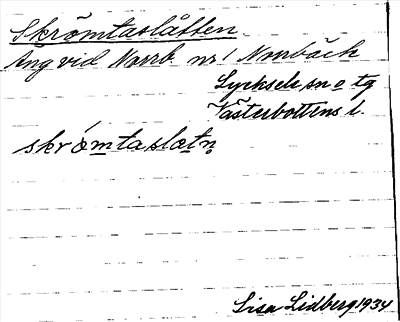 Skrömtaslåtten
Äng vid Norrb. nr 1 Norrbäck
Lycksele sn o tg
Västerbottens l.
skrömtaslɔtn̥
Lisa Lidberg 1934